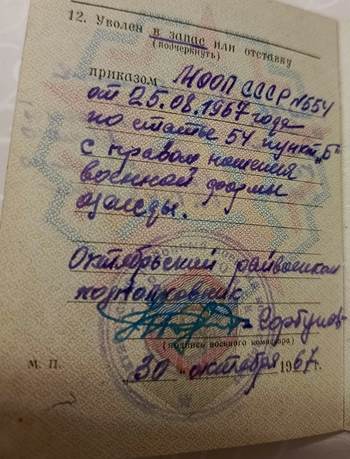 12. Уволен в запас или отставку
(подчеркнуть)
приказом МООП СССР №554
от 25.08.1967 года
по статье 54 пункт „Б"
с правом ношения
военной формы
одежды.
Октябрьский райвоенком
подполковник
Горбунов
(подпись военного комиссара)
М. П. 30 " октября 1967 г.